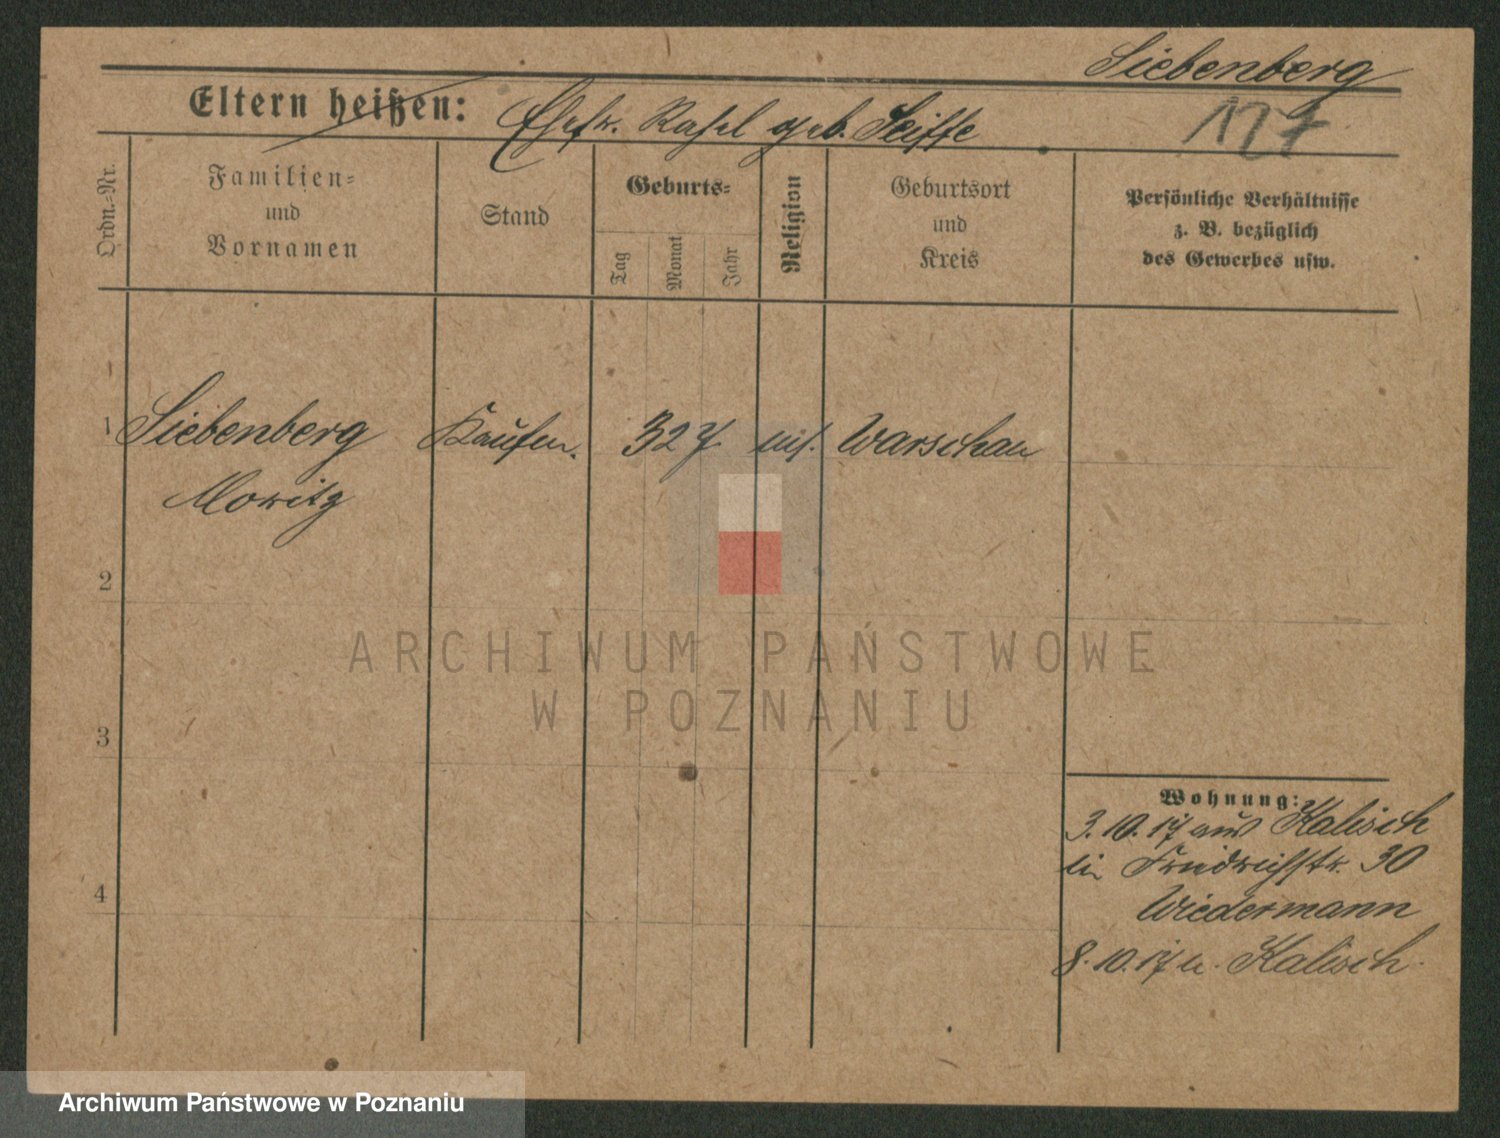 Siebenberg
Eltern heißen: Ehefr. Rahel geb. Seiffe
127
Ordn.-Nr.
Familien=
und
Vornamen
Stand
Geburts=
Tag
Monat
Jahr
Religion
Geburtsort
und
Kreis
Persönliche Verhältnisse
z. B. bezüglich
des Gewerbes usw.
1 Siebenberg Kaufm. 32 J. Warschau
Moritz
2
3
4
Wohnung:
3.10.17 aus Kalisch
Friedrichstr. 30
Wiedermann
8.10.17 n. Kalisch.
ARCHIWUM PAŃSTWOWE
W POZNANIU
Archiwum Państwowe w Poznaniu